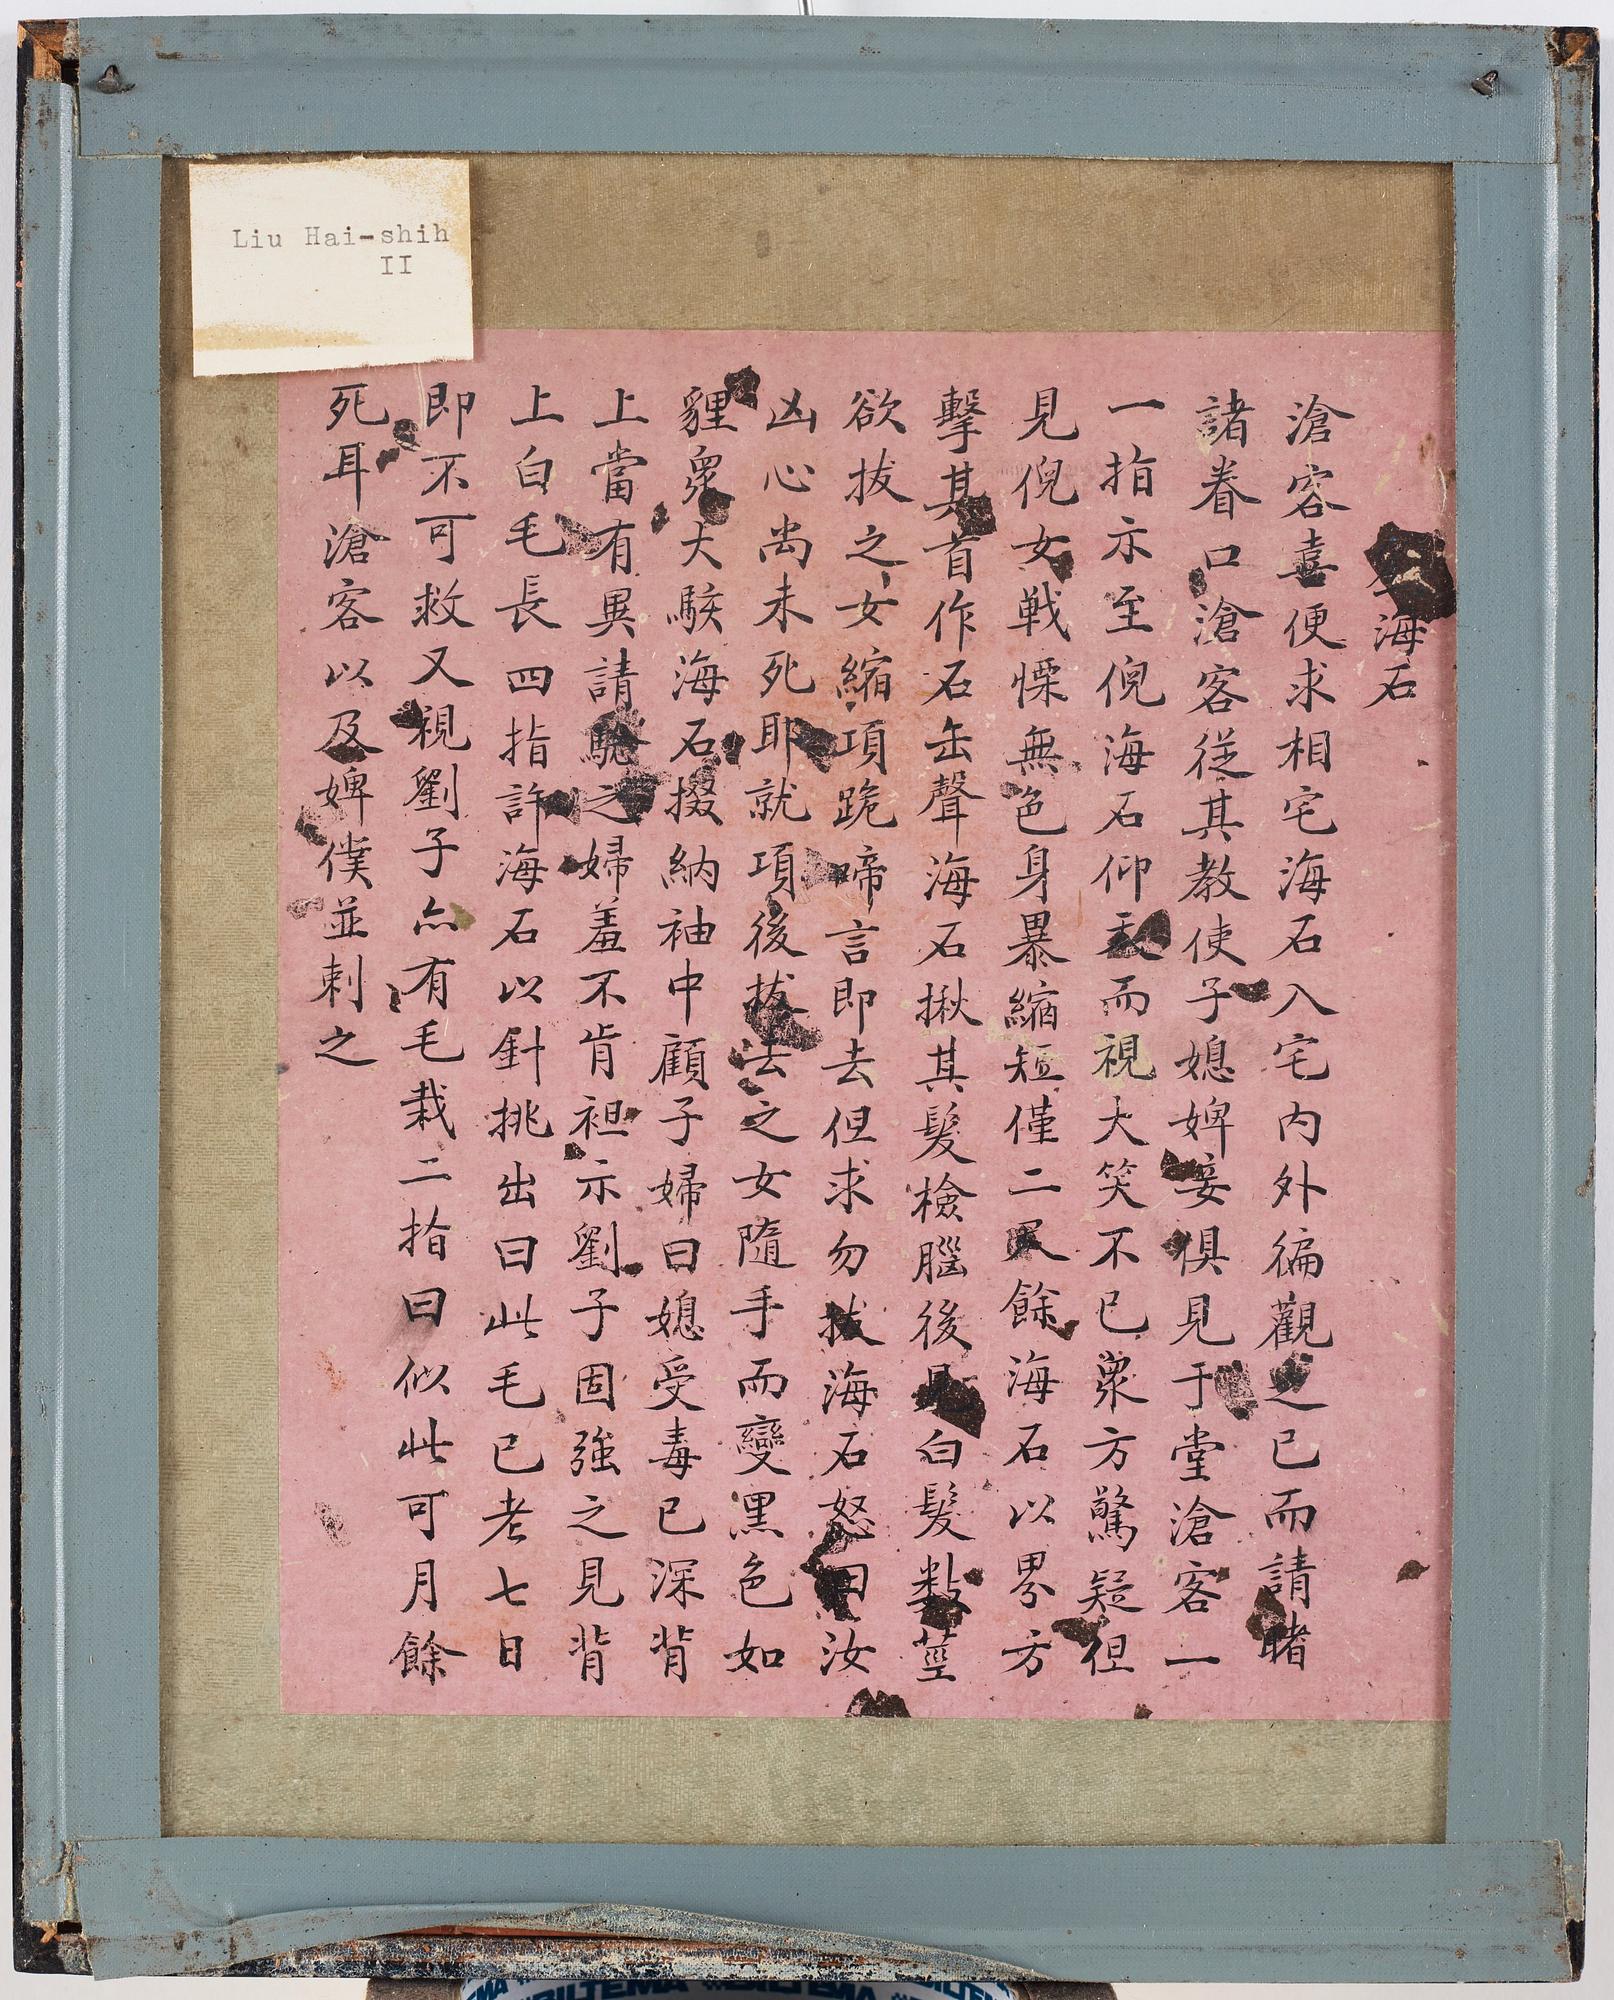 Liu Hai-shih
II
海石
滄客喜便求相宅海石入宅内外徧觀之已而請睹
諸眷口滄客從其教使子媳婢妾俱見于堂滄客一
一指示至倪海石仰天而視大笑不已衆方驚疑但
見倪女戰慄無色身暴縮短僅二尺餘海石以界方
擊其首作石缶聲海石揪其髮檢腦後見白髮數莖
欲拔之女縮項跪啼言即去但求勿拔海石怒曰汝
凶心尚未死耶就項後拔去之女隨手而變黑色如
貍衆大駭海石掇納袖中顧子婦曰媳受毒已深背
上當有異請驗之婦羞不肯袒示劉子固強之見背
上白毛長四指許海石以針挑出曰此毛已老七日
即不可救又視劉子亦有毛栽二指曰似此可月餘
死耳滄客以及婢僕並刺之
BILTEMA